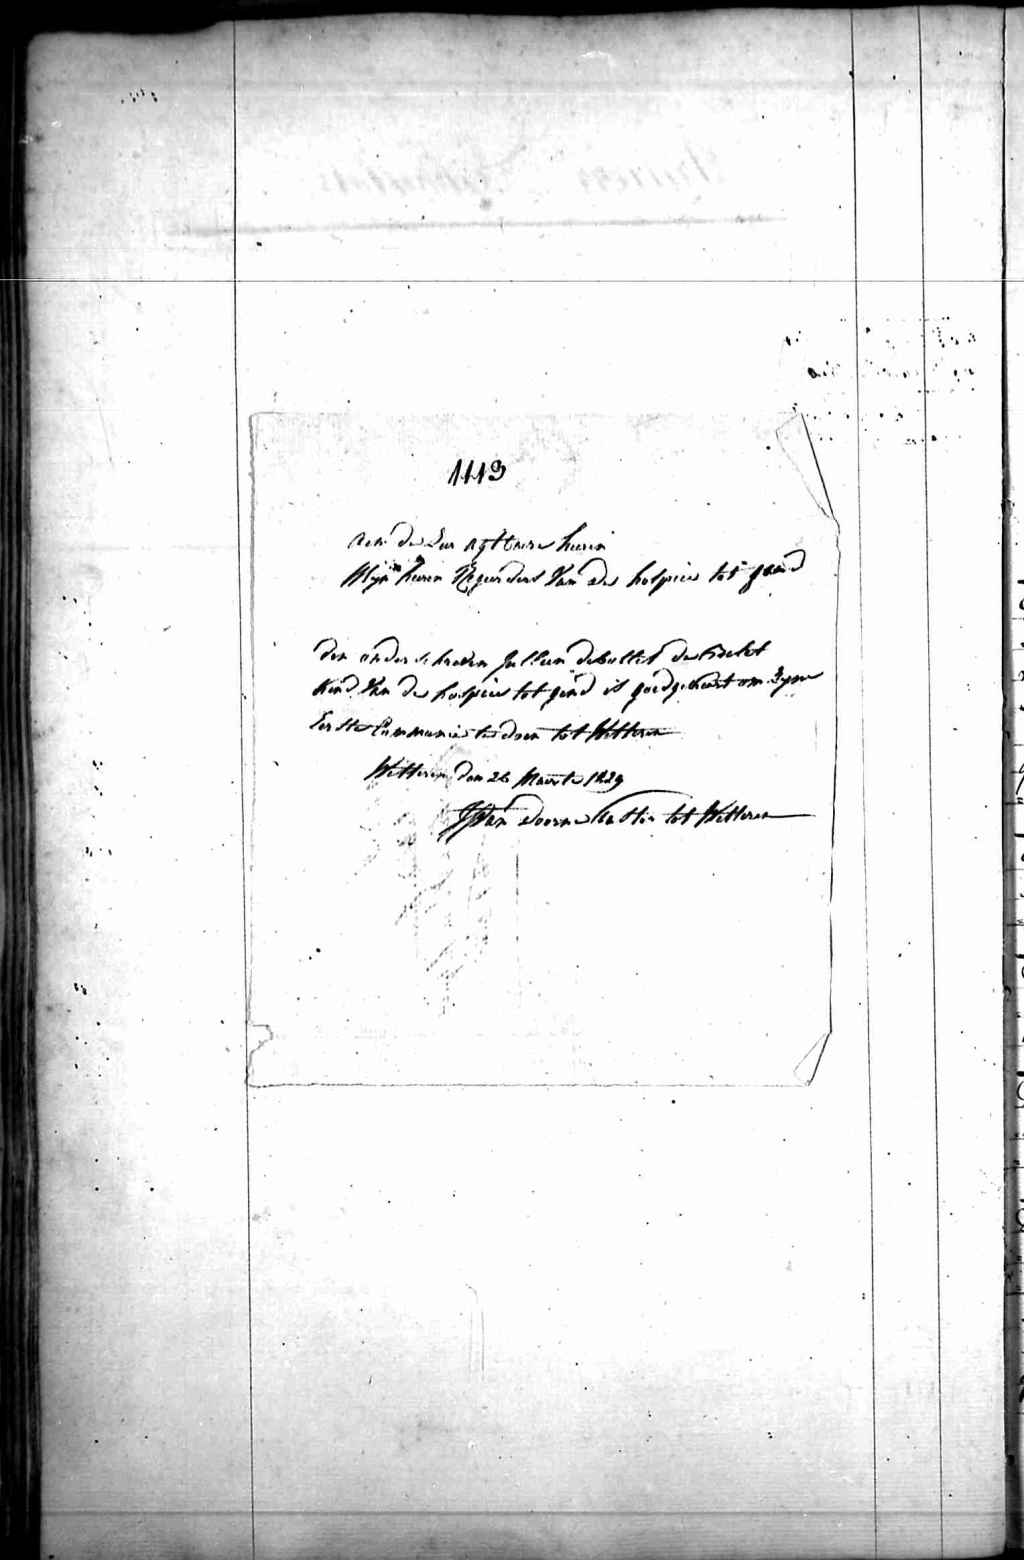 1113
Aen de Eer agtbaere heeren
Mijn heeren Regeerders Van des hospice tot gend
den onder schreven Jullien
Kind Van des hospice tot gend is goedgekeurt om Zyne
Eerste Communie te doen tot Wetteren
Wetteren den 26 Maerte 1829
Van doorne Coster tot Wetteren